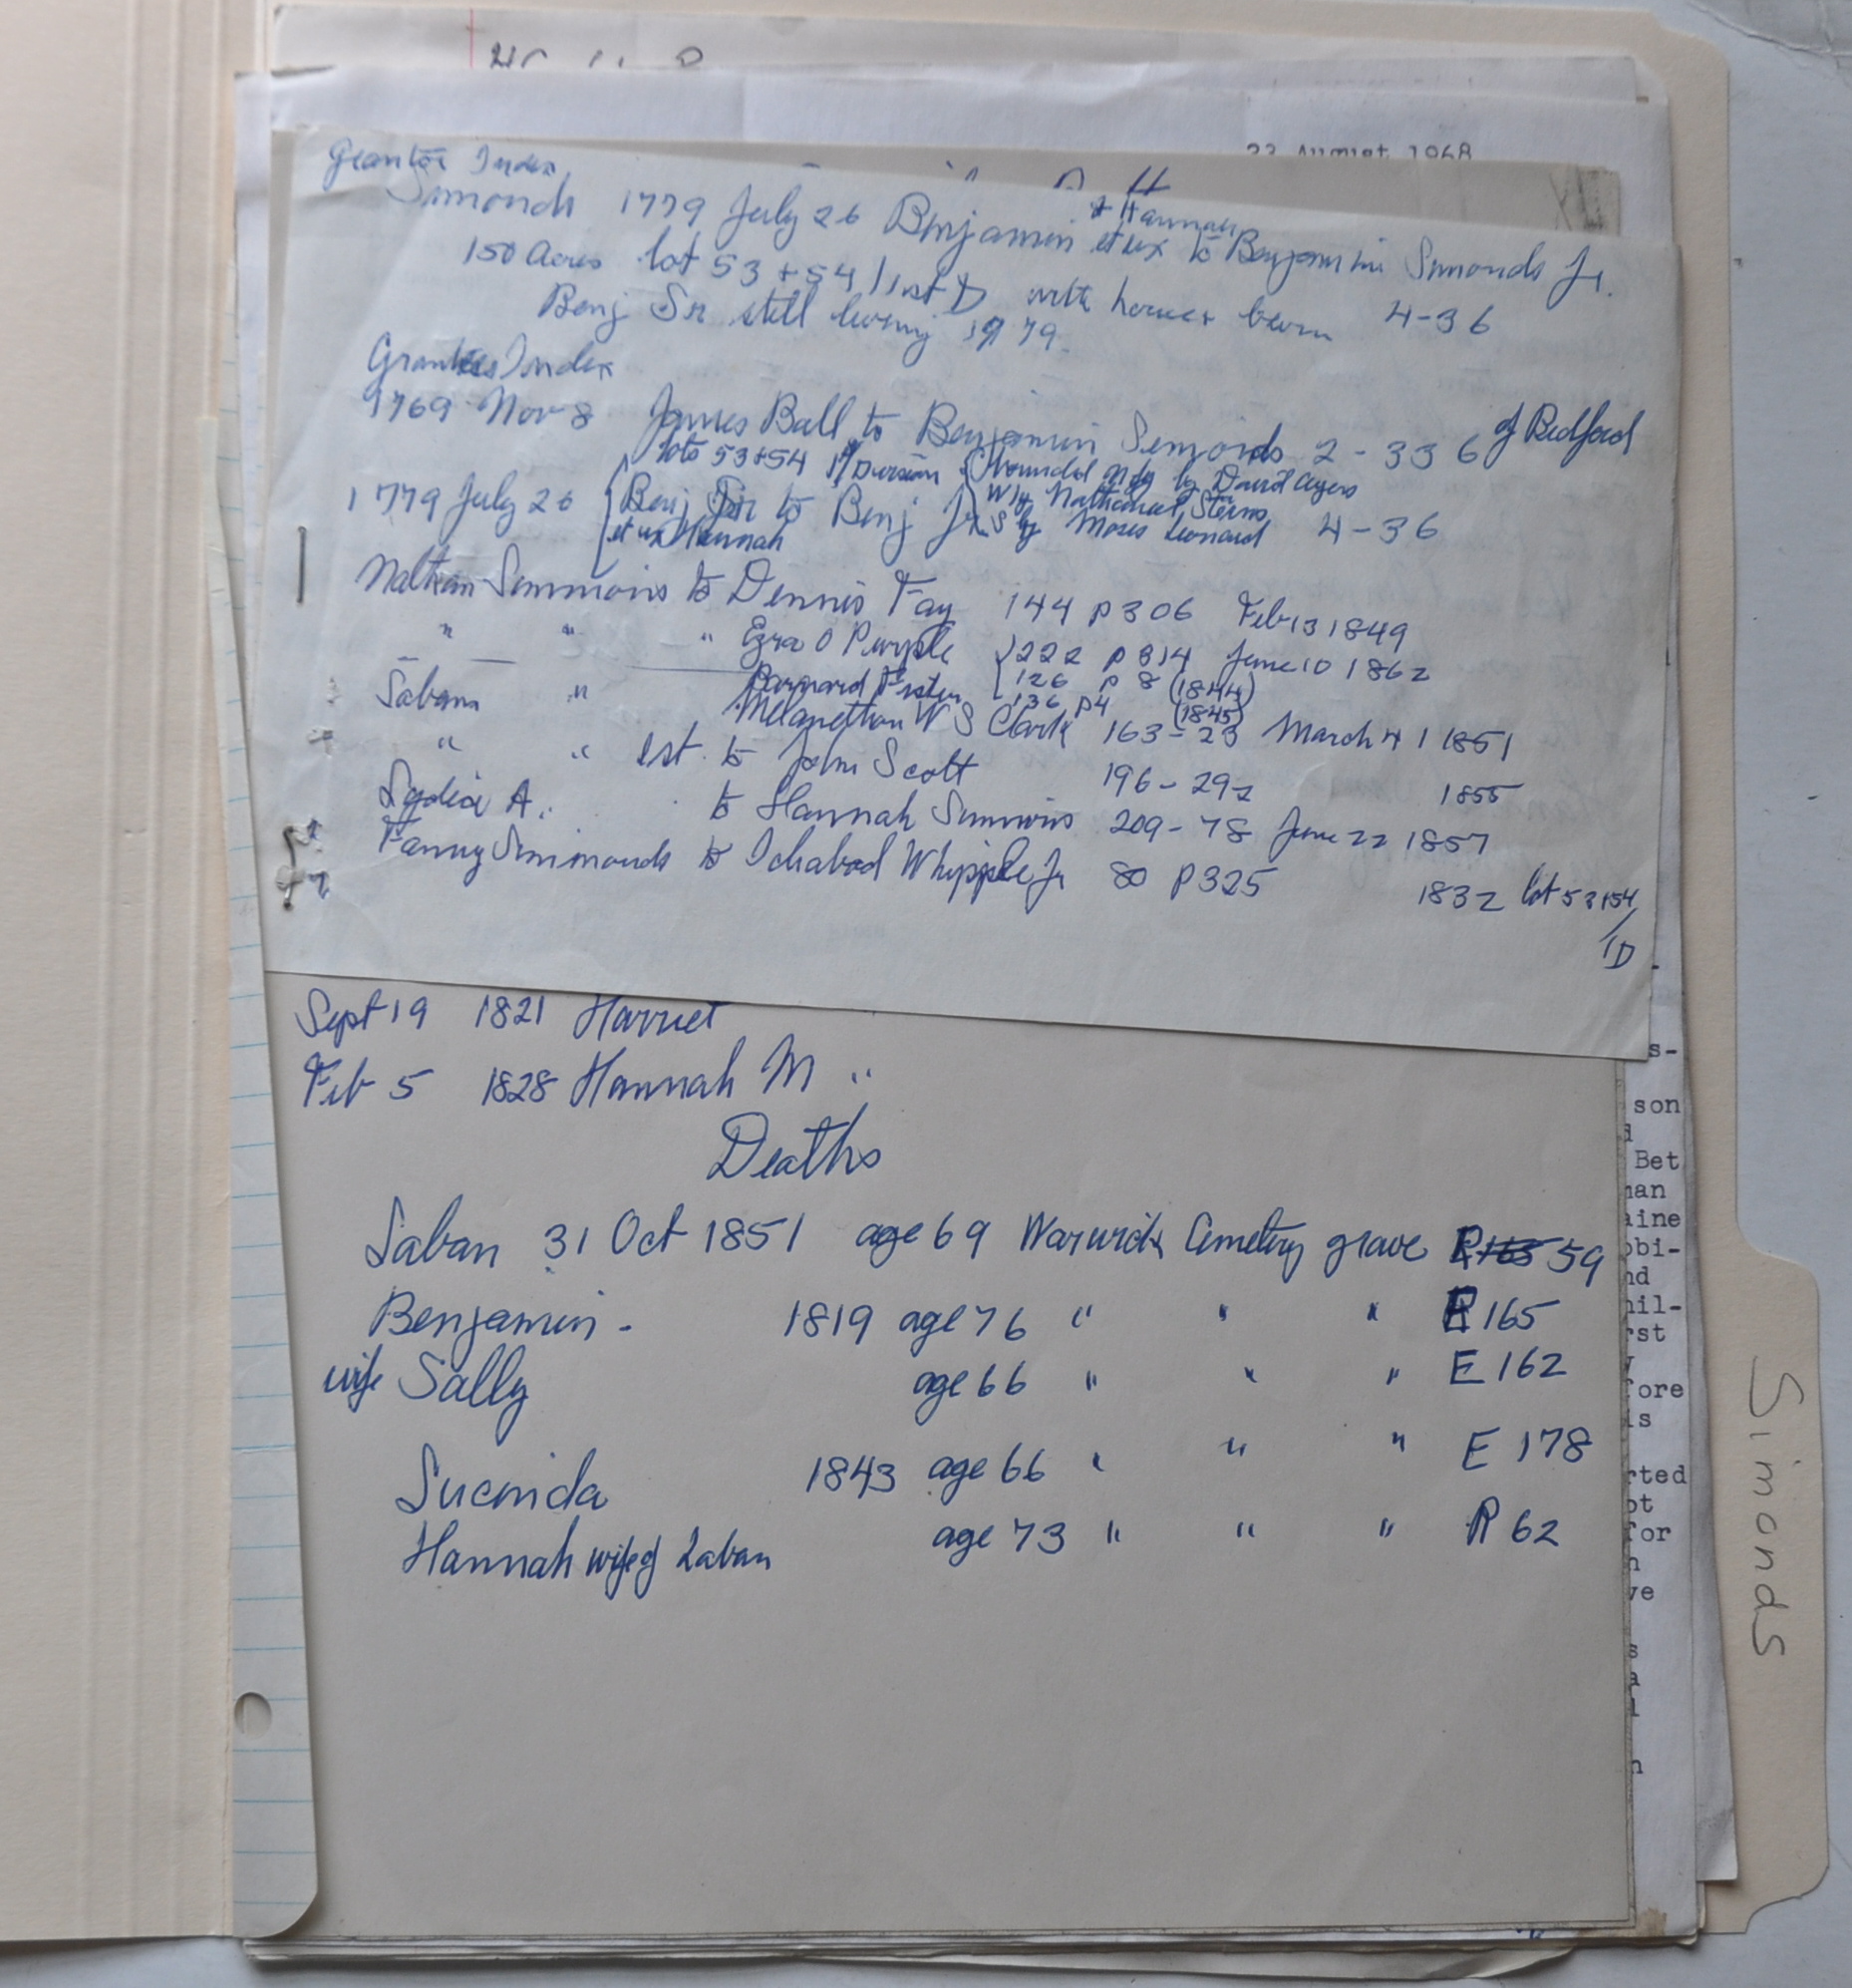 23 August 1968
Grantor Index
Simonds 1779 July 26 Benjamin et ux + Hannah to Benjamin Simonds Jr.
150 Acres lot 53 + 54 1st D with house + barn 4-36
Benj Sr still living 1779.
Grantees Index
1769 Nov 8 James Ball to Benjamin Simonds 2-336 of Bedford
lots 53+54 1st Division bounded by David Ayers
W by Nathaniel Sterns
1779 July 26 Benj Sr to Benj Jr. S by Moses Leonard 4-36
et ux Hannah
Nathan Simmons to Dennis Fay 144 p306 Feb 13 1849
" " " Ezra O Purple 222 p 314 June 10 1862
126 p 8 (1844)
136 p4 (1845)
Laban " Melancthon W S Clark 163-23 March 4 1851
" " est. to John Scott 196-292 1855
Lydia A. to Hannah Simmons 209-78 June 22 1857
Fanny Simmonds to Ichabod Whipple Jr 80 p325 1832 lot 53+54/
1D
Sept 19 1821 Harriet
Feb 5 1828 Hannah M "
Deaths
Laban 31 Oct 1851 age 69 Warwick Cemetery grave R 165 59
Benjamin - 1819 age 76 " " " E 165
wife Sally age 66 " " " E 162
Lucinda 1843 age 66 " " " E 178
Hannah wife of Laban age 73 " " " R 62
s-
son
d
Bet
man
aine
obi-
nd
hil-
rst
fore
is
rted
ot
for
n
ve
s
a
n
Simonds